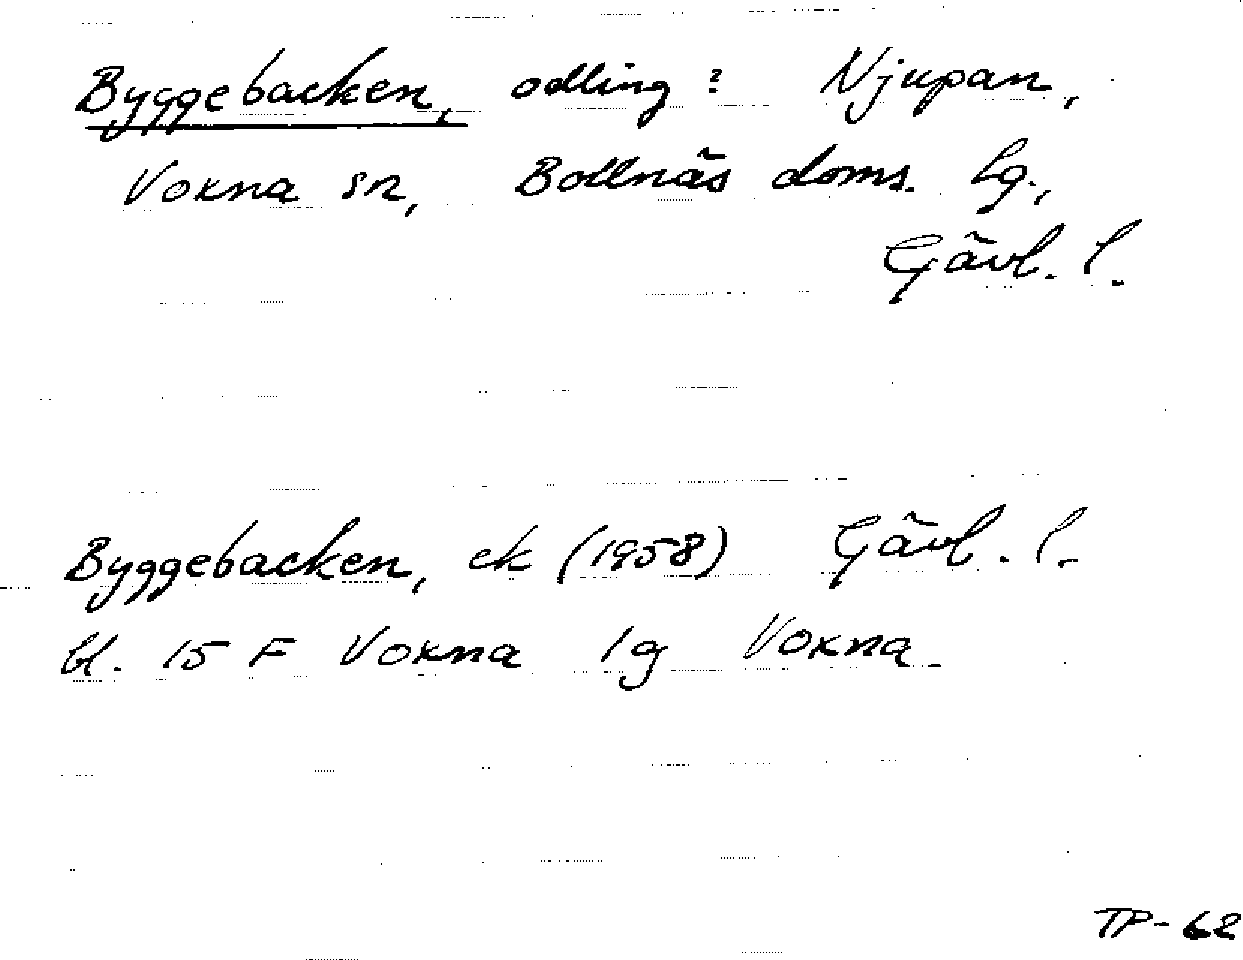 Byggebacken, odling? Njupan,
Voxna sn, Bollnäs doms. lg.,
Gävl. l.
Byggebacken, ek (1958) Gävl. l.
bl. 15 F Voxna 1g Voxna
TP-62